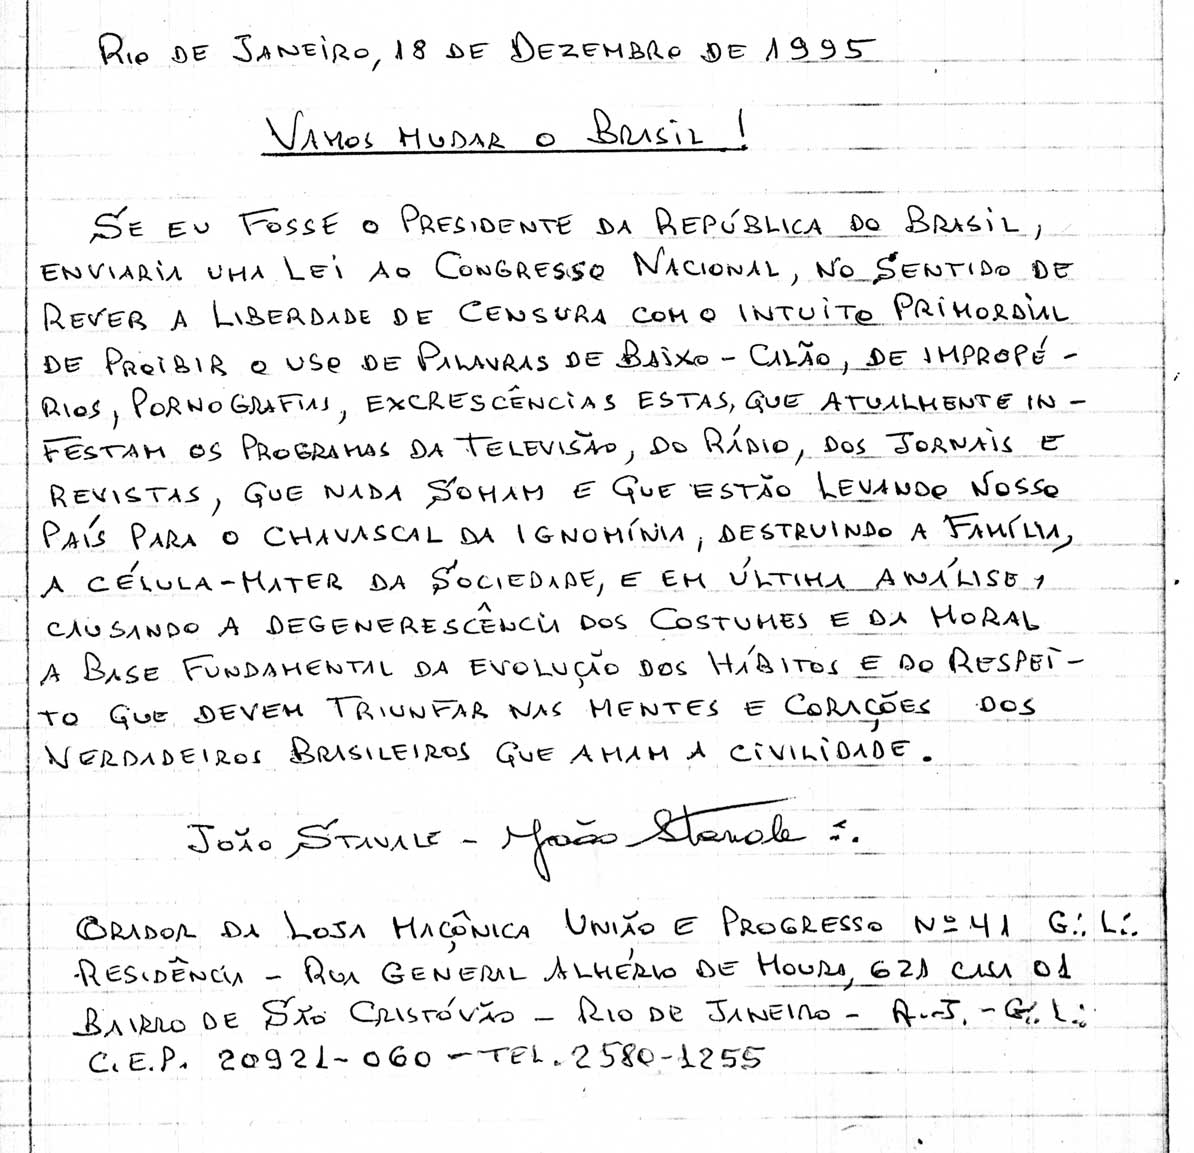 Rio de Janeiro, 18 de Dezembro de 1995
Vamos mudar o Brasil!
Se eu fosse o Presidente da República do Brasil,
enviaria uma Lei ao Congresso Nacional, no sentido de
rever a Liberdade de Censura com o intuito primordial
de proibir o uso de palavras de baixo-calão, de impropé-
rios, pornografias, excrescências estas, que atualmente in-
festam os programas da televisão, do rádio, dos jornais e
revistas, que nada somam e que estão levando nosso
País para o chavascal da ignomínia, destruindo a família,
a célula-mater da sociedade, e em última análise,
causando a degenerescência dos costumes e da moral
a base fundamental da evolução dos hábitos e do respei-
to que devem triunfar nas mentes e corações dos
verdadeiros brasileiros que amam a civilidade.
João Stavale - João Stavale
Orador da Loja Maçônica União e Progresso Nº 41 G∴ L∴
Residência - Rua General Almério de Moura, 621 casa 01
Bairro de São Cristóvão - Rio de Janeiro - R.J. - G∴ L∴
C.E.P. 20921-060 - Tel. 2580-1255